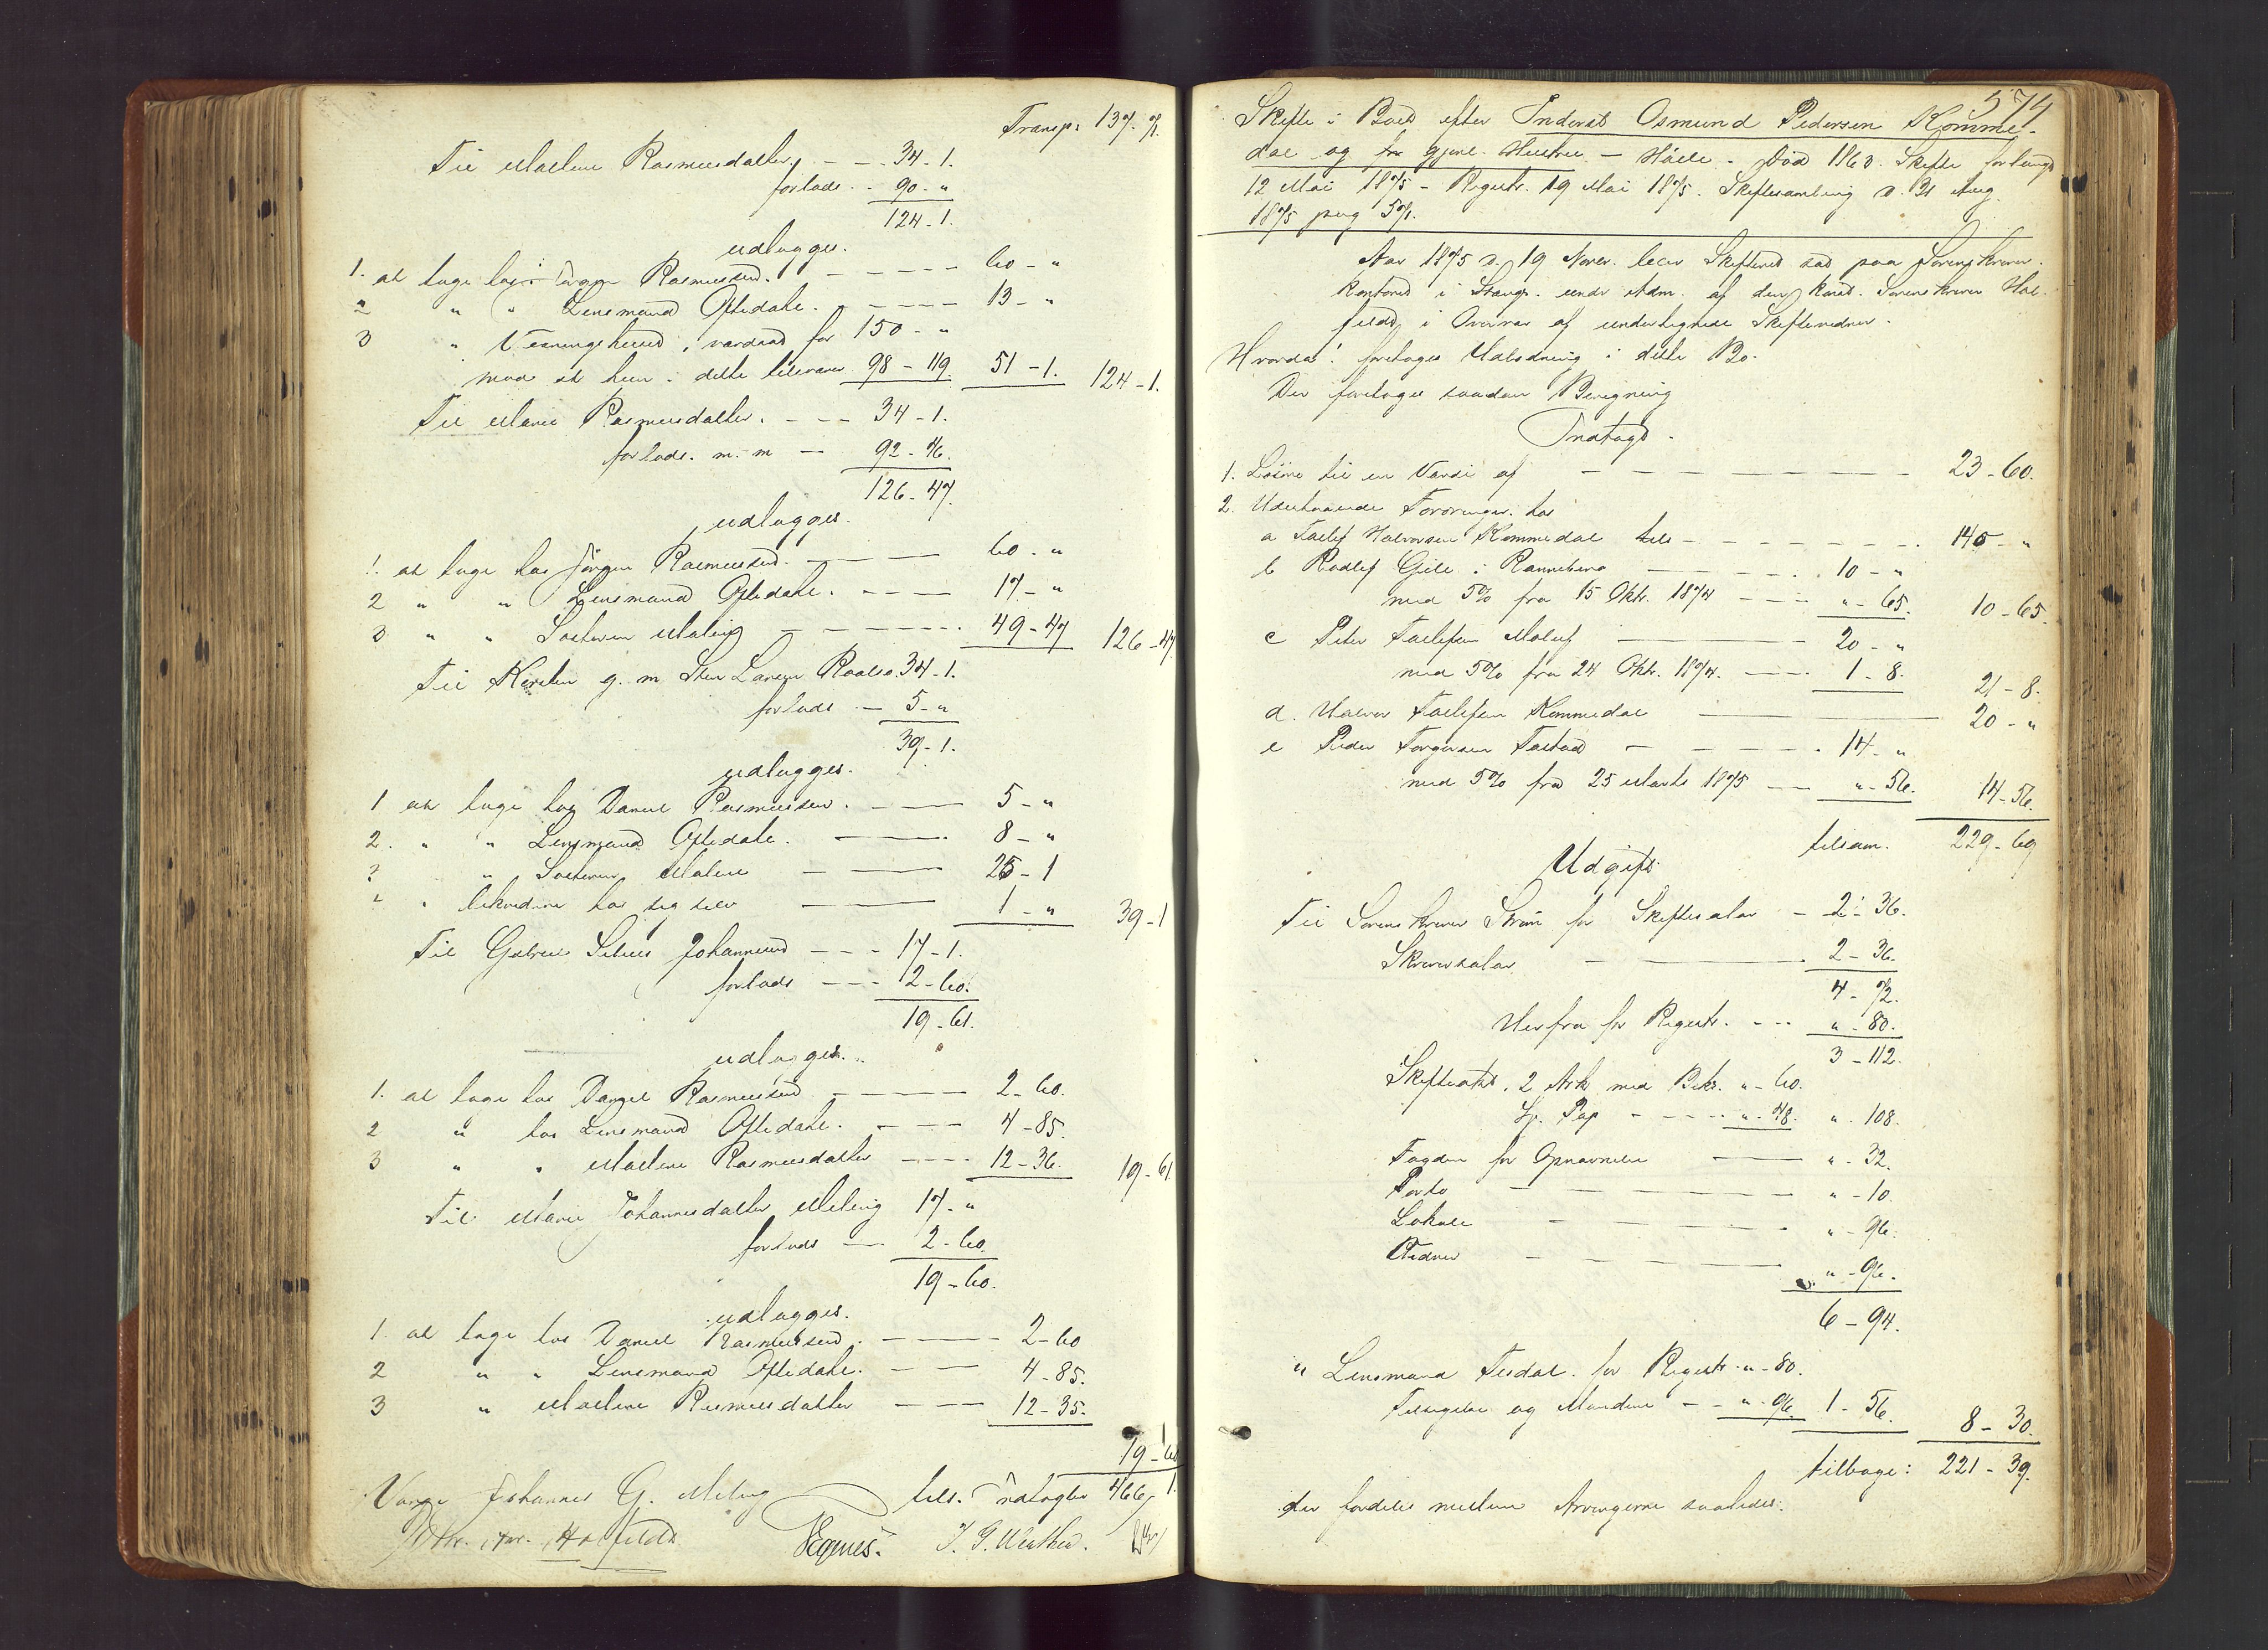 Transp: 137.
Til Malene Rasmusdatter - - 34-1.
forlods - - 90-"
124-1.
udlægges.
1. at tage hos Jørgen Rasmussen - - - - 60-"
2 " " Lensmand Oftedahl. - - - - 13-"
3 " Vaaningshuset, værdsat for 150-"
mod at hun i dette tilsvarer 98-119. 51-1. 124-1.
Til Maren Rasmusdatter. - - - 34-1.
forlods. m. m - 92-46.
126-47.
udlægges.
1. at tage hos Jørgen Rasmussen. - - 60-"
2 " " Lensmand Oftedahl. - - - - 17-"
3 " " Søsteren Malene - - - - - - 49-47 126-47
Til Kirsten g. m. Sten Larsen 34-1.
forlods - 5-"
39-1.
udlægges.
1 at tage hos Daniel Rasmussen. - - 5-"
2. " " Lensmand Oftedahl. - - 8-"
3 " Søsteren Malene - - 25-1
" likvidere hos sig selv - - 1-" 39-1
Til Gabriel Johannessen - - - 17-1.
forlods - - - 2-60.
19-61.
udlægges.
1. at tage hos Daniel Rasmussen - - - - - 2-60.
2 " hos Lensmand Oftedahl. - - - 4-85.
3 " " Malene Rasmusdatter - - - - 12-36. 19-61
Til Maren Johannesdatter Meling 17-"
forlods - 2-60.
19-60.
udlægges.
1. at tage hos Daniel Rasmussen. - - - - 2-60
2 " " Lensmand Oftedahl. - - 4-85.
3 " Malene Rasmusdatter - - - 12-35.
19-60
Johannes G. Meling tils. Indtægten 466-1.
Hatfeldt

574
Skifte i Boet efter Inderst Osmund Pedersen Komme-
dal og gjenl. Hustru - Død 1863. Skifte forlangt
12 Mai 1875 - Registr. 19 Mai 1875. Skiftesamling d. 31 Aug.
1875 pag 571.
Aar 1875 d. 19 Novbr. blev Skifteret sat paa Sorenskriver-
kontoret i Stavgr. under Adm. af den konst. Sorenskriver Hat-
feldt i Overvær af undertegnede Skiftevidner.
Hvorda: foretages Udlodning i dette Bo.
Der foretages saadan Beregning
Indtægt.
1. Løsøre til en Værdi af - - - - - - - - 23-60.
2. Udestaaende Fordringer hos
a Tollef Halvorsen Kommedal tils - - - - - - - 140-"
b Rodlef Gile i Ranneberg - - - - 10-"
med 5% fra 15 Oktr. 1874 - - - "-65. 10-65.
c Peter Tollefsen - 20-"
med 5% fra 24 Oktr. 1874. - - - 1-8. 21-8.
d. Halvor Tollefsen Kommedal - 20-"
e Peder Torgersen Tastad - - - - - 14-"
med 5% fra 25 Marts 1875 - - "-56. 14-56.
tilsam. 229-69
Udgift.
Til Sorenskriver Strøm for Skiftesalær - 2-36.
Skriversalær - - 2-36.
4-72.
Herfra for Registr. - - - "-80.
3-112.
Skifteakt. 2 Ark med Bekr. "-60.
St. Pap - - - - "-48. "-108.
Fogden for Opnævnelse - "-32.
Porto - - - - - - "-10.
Lokale - - - - "-96.
Vidner - - - - "-96.
6-94.
" Lensmand for Registr. "-80.
Tilsigelse og Mændene - - "-96. 1-56. 8-30.
tilbage: 221-39.
der fordeles mellem Arvingerne saaledes: